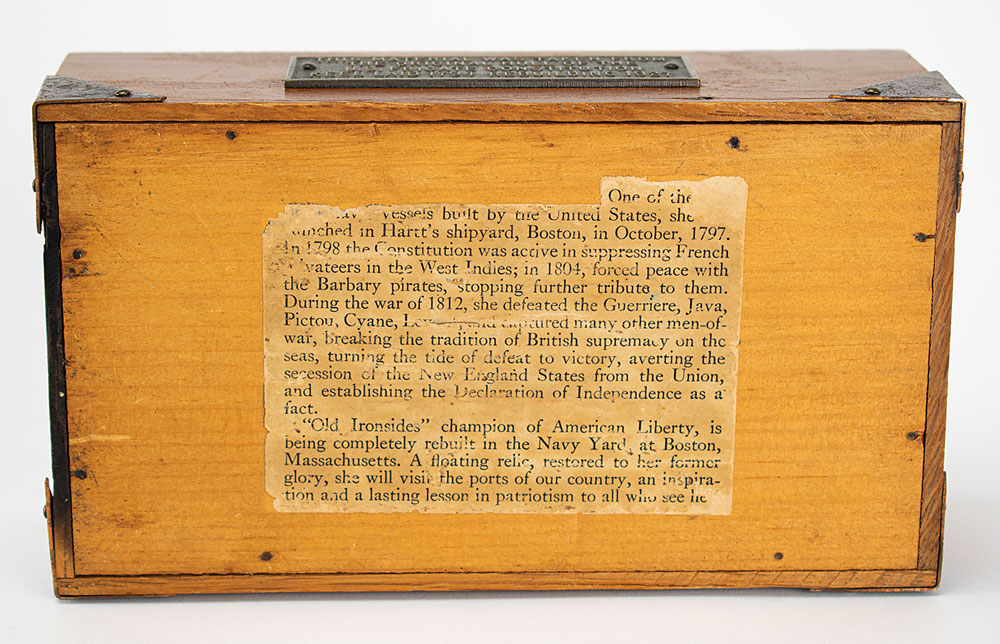 One of the
vessels built by the United States, she
launched in Hartt's shipyard, Boston, in October, 1797.
In 1798 the Constitution was active in suppressing French
privateers in the West Indies; in 1804, forced peace with
the Barbary pirates, stopping further tribute to them.
During the war of 1812, she defeated the Guerriere, Java,
Pictou, Cyane, and captured many other men-of-
war, breaking the tradition of British supremacy on the
seas, turning the tide of defeat to victory, averting the
secession of the New England States from the Union,
and establishing the Declaration of Independence as a
fact.
"Old Ironsides" champion of American Liberty, is
being completely rebuilt in the Navy Yard, at Boston,
Massachusetts. A floating relic, restored to her former
glory, she will visit the ports of our country, an inspira-
tion and a lasting lesson in patriotism to all who see he